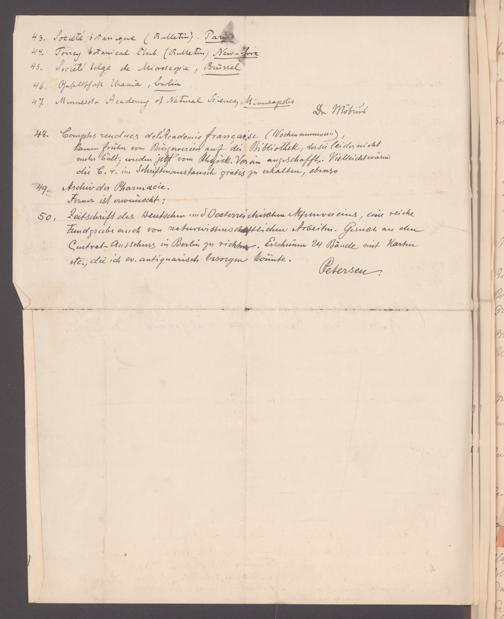 43. Société botanique (Bulletin). Paris
44. Torrey botanical Club (Bulletin) New-York
45. Société belge de Microscopie, Brüssel
46. Gesellschaft Urania, Berlin
47. Minnesota Academy of Natural Sciences, Minneapolis
Dr Möbius
48. Comptes rendues de l'Academie française (Wochennummern),
kamen früher von auf die Bibliothek, da sie leider nicht
mehr hält, werden jetzt vom Physik. Verein angeschafft. Vielleicht wären
die C. r. im Schriftenaustausch gratis zu erhalten, ebenso
49. Archiv der Pharmacie.
Ferner ist erwünscht:
50. Zeitschrift des Deutschen und Oesterreichischen Alpenvereins, eine reiche
Fundgrube auch von naturwissenschaftlichen Arbeiten. Gesuch an den
Central-Ausschuss in Berlin zu richten. Erschienen 24 Bände mit Karten
etc., die ich ev. antiquarisch besorgen könnte.
Petersen.